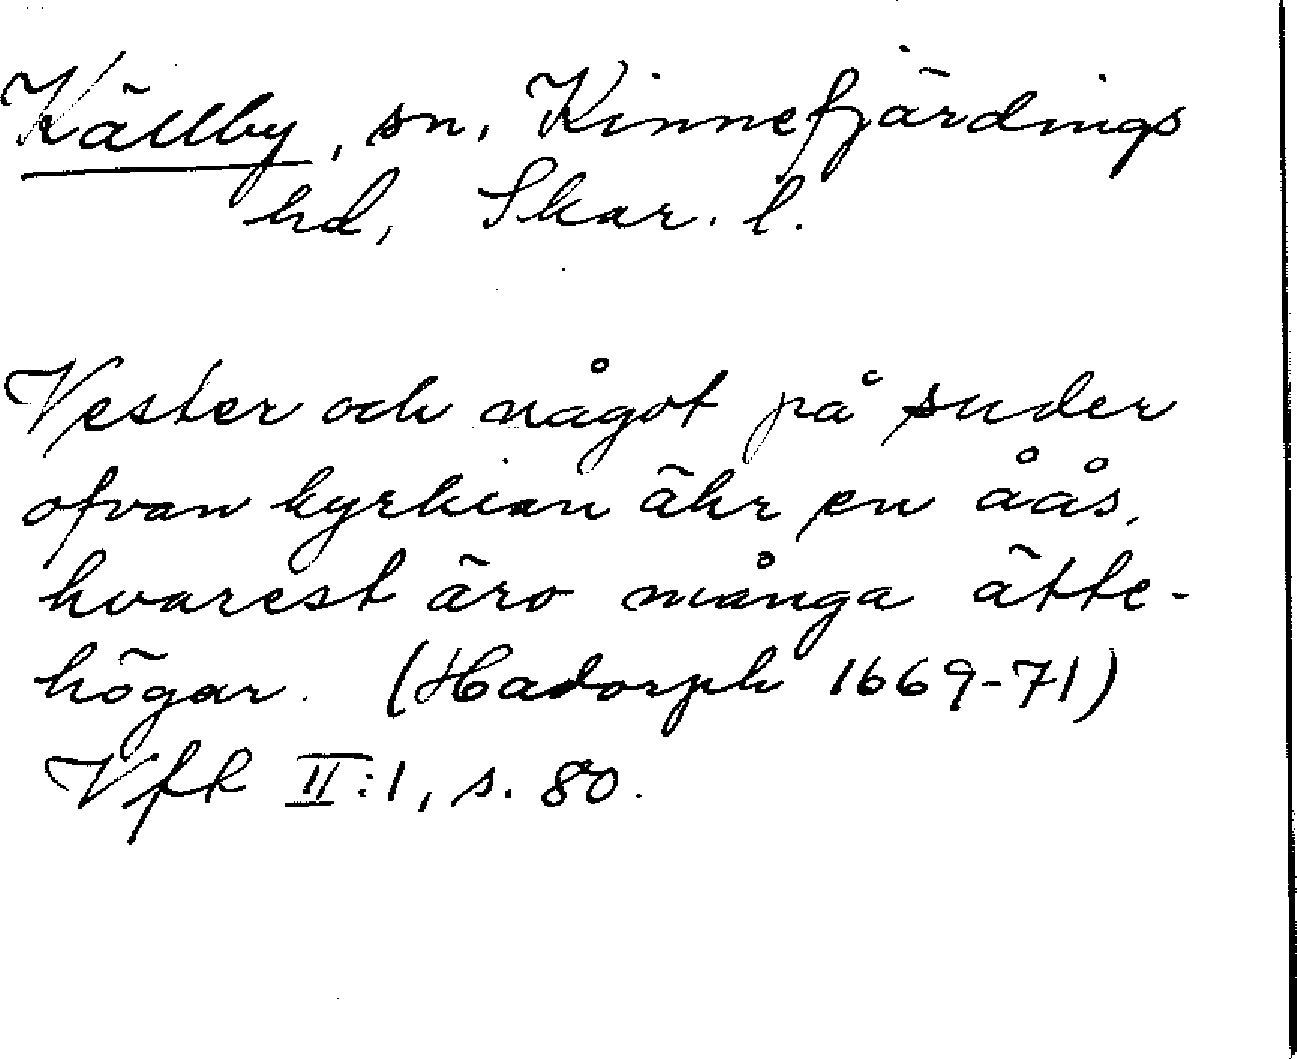 Källby, sn, Kinnefjärdings
hd, Skar. l.
Vester och något på suder
ofvan kyrkian ähr en åås,
hvarest äro många ätte-
högar. (Hadorph 1669-71)
Vfk II:1, s. 80.